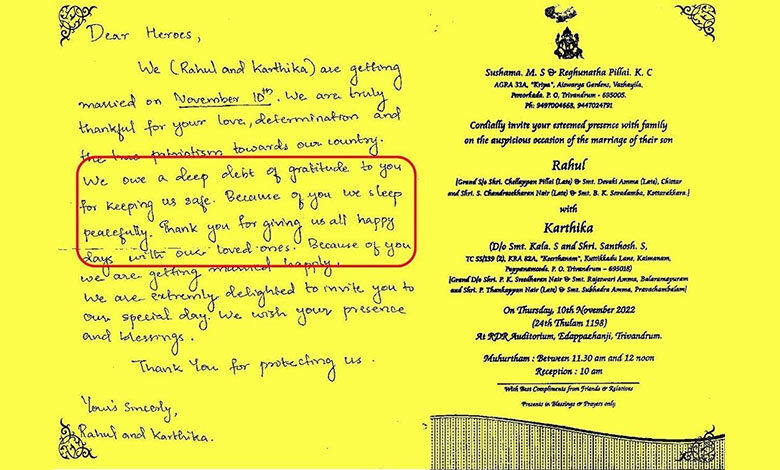 Dear Heroes,
We (Rahul and Karthika) are getting
married on November 10th. We are truly
thankful for your love, determination and
the true patriotism towards our country.
We owe a deep debt of gratitude to you
for keeping us safe. Because of you we sleep
peacefully. Thank you for giving us all happy
days with our loved ones. Because of you
we are getting married happily.
We are extremely delighted to invite you to
our special day. We wish your presence
and blessings.
Thank You for protecting us.
Your's sincerly,
Rahul and Karthika.
Sushama. M. S & Reghunatha Pillai. K. C
AGRA 33A, "Kripa", Aiswarya Gardens, Vazhayila,
Peroorkada. P. O, Trivandrum - 695005.
Ph: 9497004668, 9447024791
Cordially invite your esteemed presence with family
on the auspicious occasion of the marriage of their son
Rahul
(Grand S/o Shri. Chellappan Pillai (Late) & Smt. Devaki Amma (Late), Chittar
and Shri. S. Chandrasekharan Nair (Late) & Smt. B. K. Saradamba, Kottarakkara.)
with
Karthika
(D/o Smt. Kala. S and Shri. Santhosh. S,
TC 55/139 (2), KRA 62A, "Keerthanam", Kuttikkadu Lane, Kaimanam,
Pappanamcode. P. O, Trivandrum - 695018)
(Grand D/o Shri. P. K. Sreedharan Nair & Smt. Rajamani Amma, Balaramapuram
and Shri. P. Thankappan Nair (Late) & Smt. Subhadra Amma, Pravachambalam)
On Thursday, 10th November 2022
(24th Thulam 1198)
At RDR Auditorium, Edappazhanji, Trivandrum.
Muhurtham : Between 11.30 am and 12 noon
Reception : 10 am
With Best Compliments from Friends & Relatives
Presents in Blessings & Prayers only